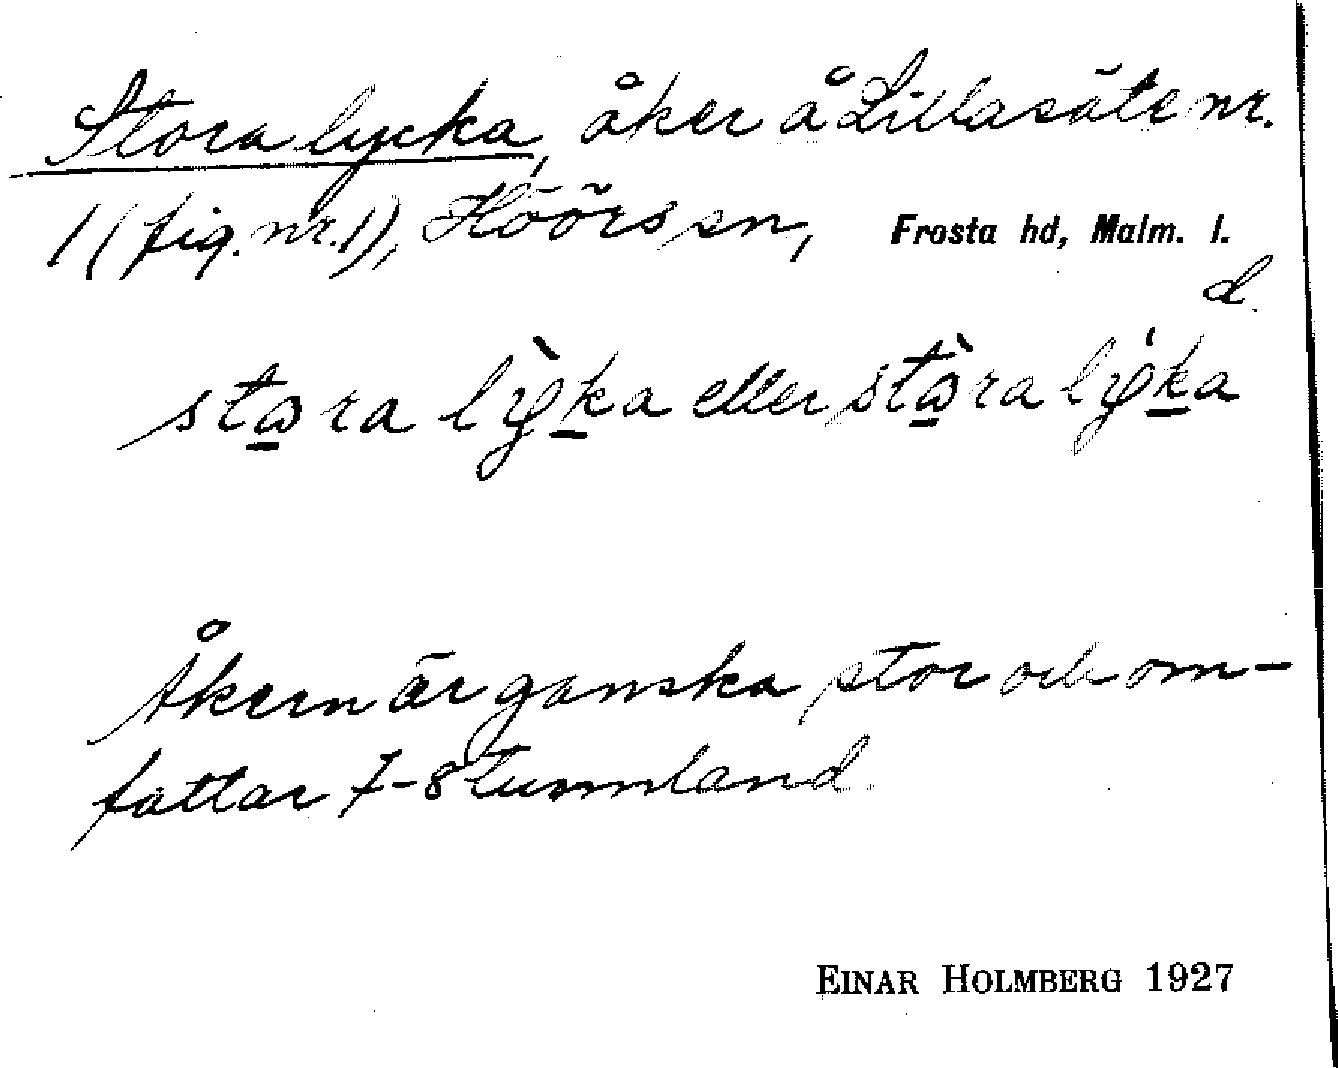 Stora lycka, åker å Lillasäte nr.
1 (fig. nr. 1), Höörs sn, Frosta hd, Malm. l.
d.
stora lỳka eller stòra lýka
Åkern är ganska stor och om-
fattar 7-8 tunnland.
EINAR HOLMBERG 1927